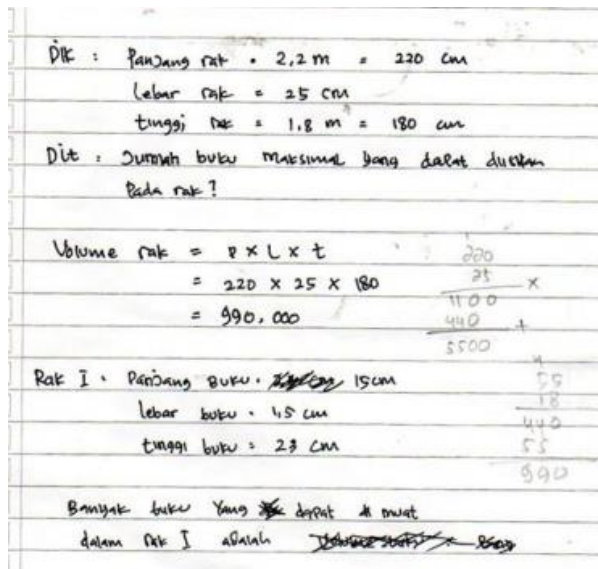 Dik : Panjang rak = 2,2 m = 220 cm
Lebar rak = 25 cm
tinggi rak = 1,8 m = 180 cm
Dit : Jumlah buku maksimal yang dapat
Pada rak?
Volume rak = P x L x t
= 220 x 25 x 180
= 990.000
220
25 x
1100
440 +
5500
Rak I : Panjang Buku = 15 cm
lebar buku = 1,5 cm
tinggi buku = 23 cm
55
18
440
55
990
Banyak buku Yang dapat di muat
dalam rak I adalah